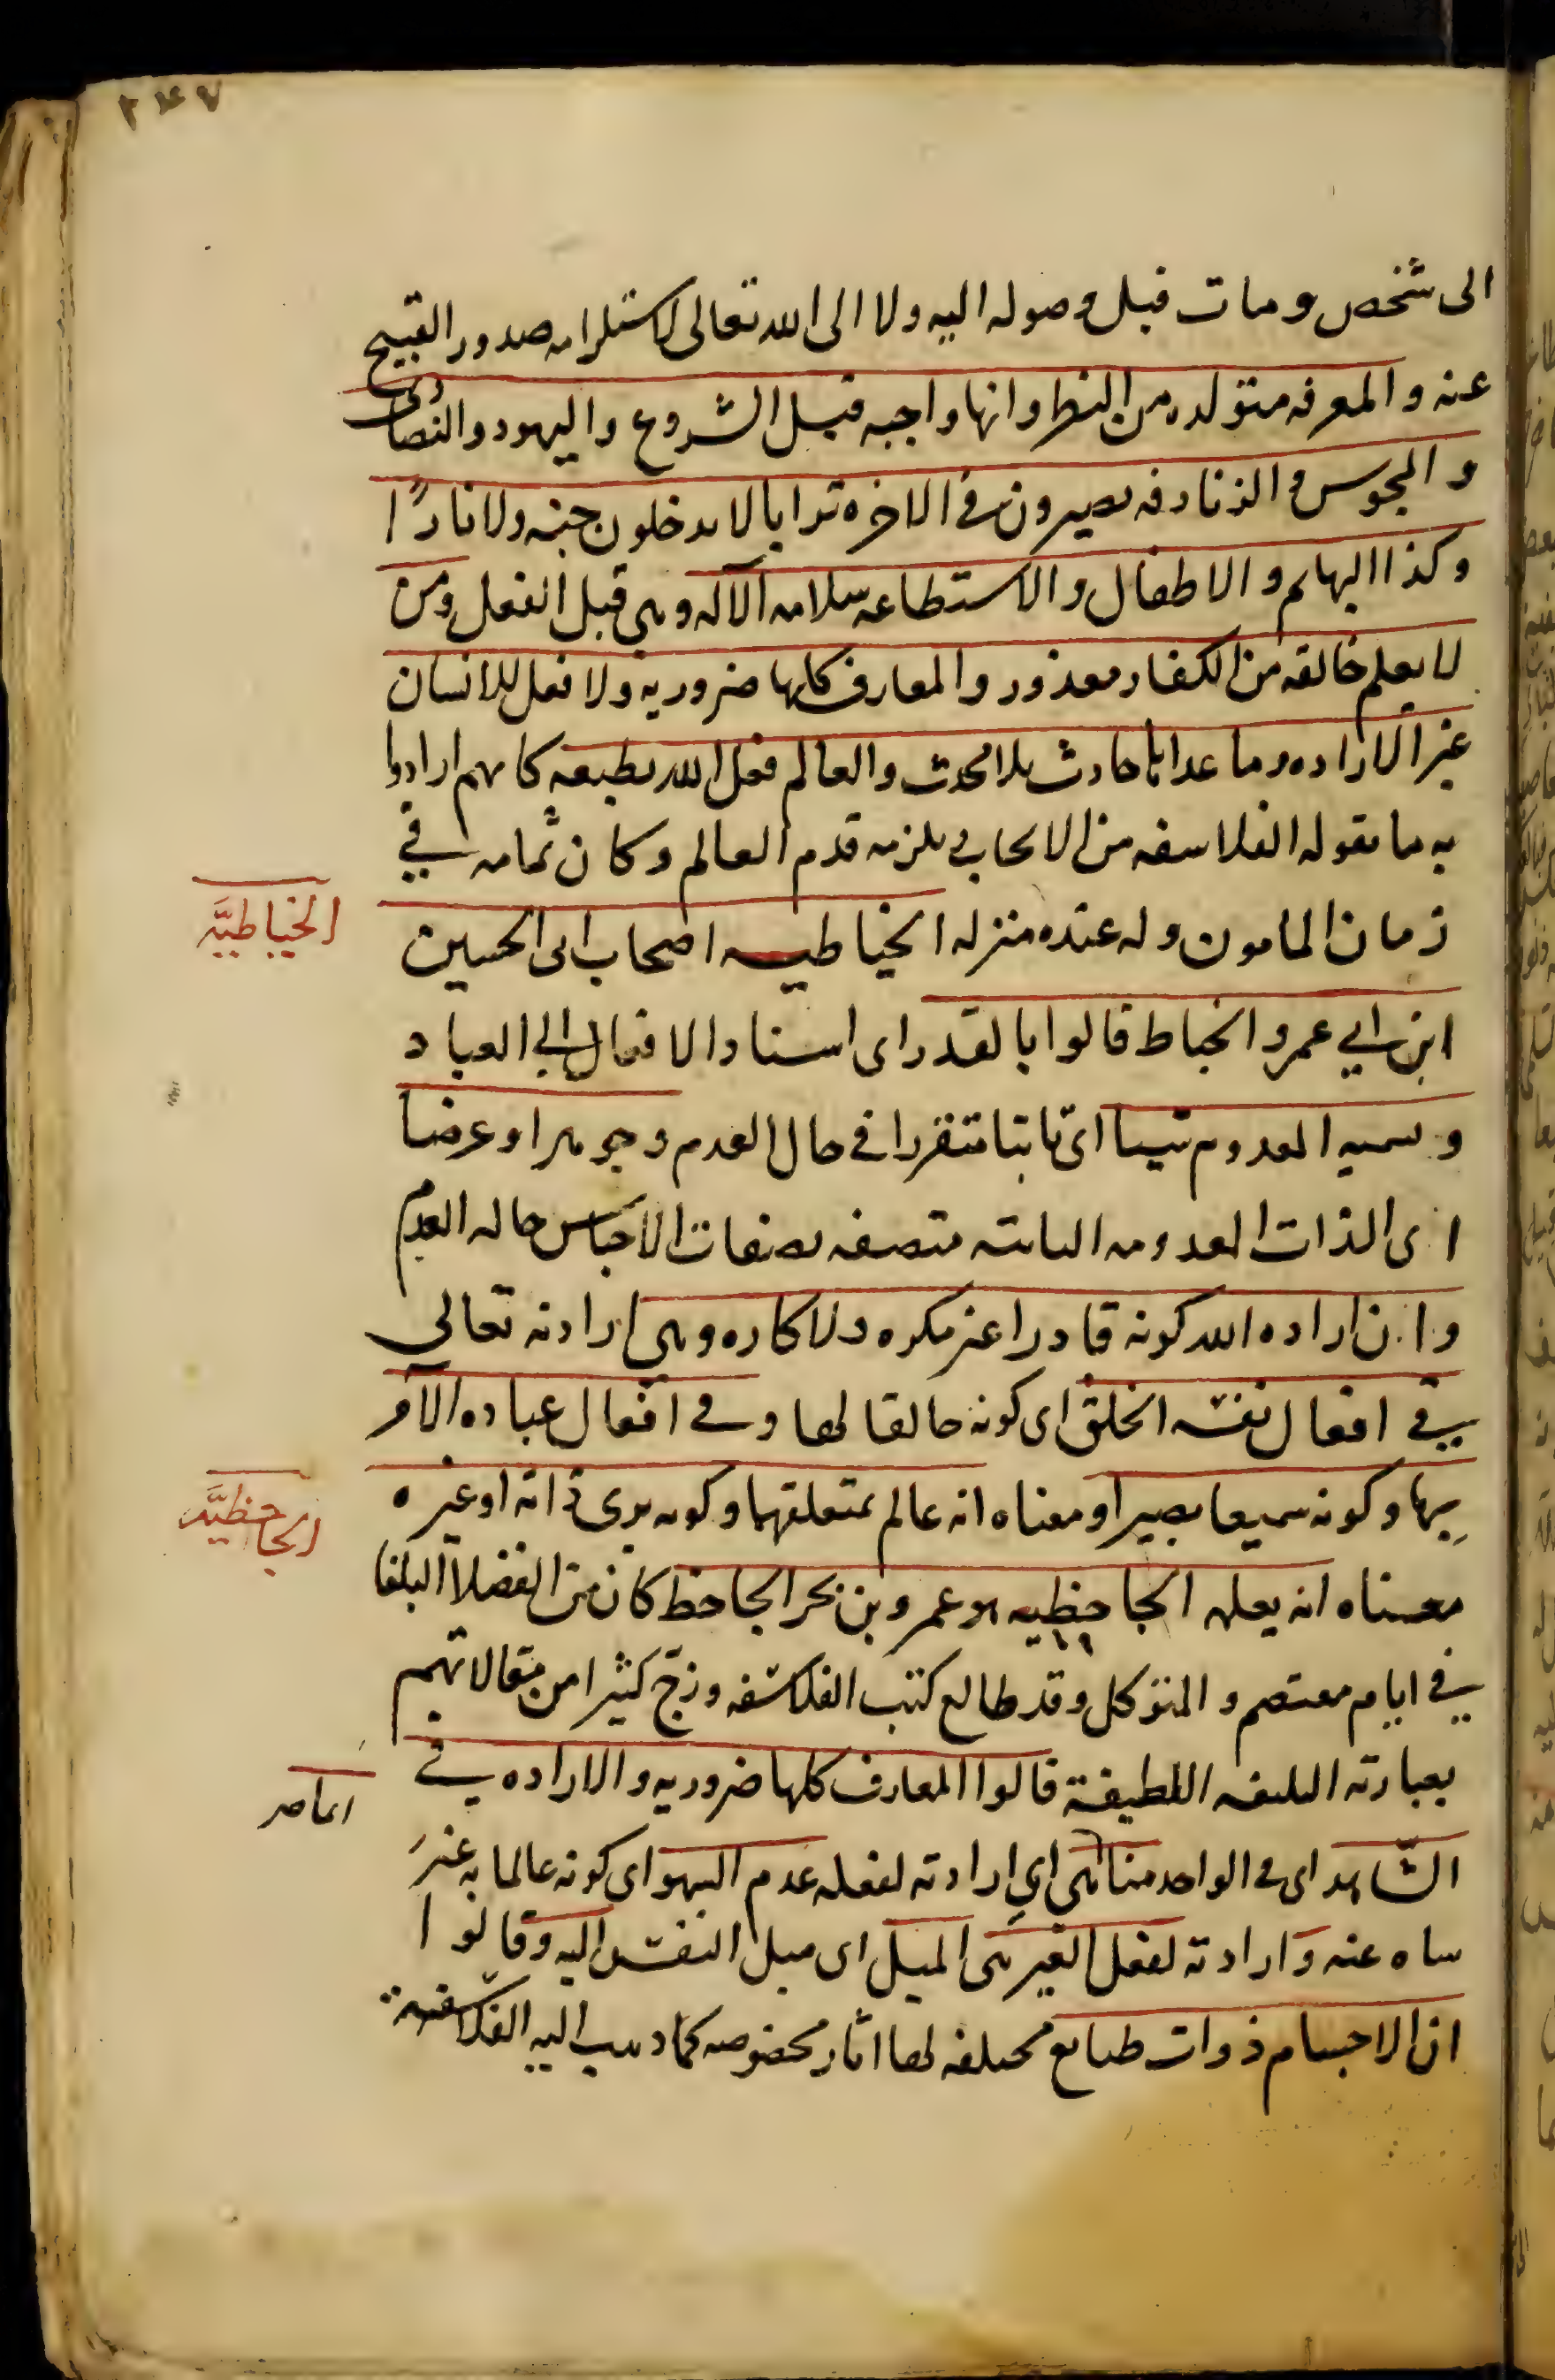 ٢٤٧
الى شخص ومات قبل وصوله اليه ولا الى الله تعالى لاستلزامه صدور القبيح
عنه والمعرفه متولده من النظر وانها واجبه قبل الشروع واليهود والنصارى
والمجوس والزنادقه يصيرون في الاخره ترابا لا يدخلون جنه ولا نارًا
وكذا البهايم والاطفال والاستطاعه سلامه الآله وهي قبل الفعل ومن
لا يعلم خالقه من الكفار معذور والمعارف كلها ضروريه ولا فعل للانسان
غير الاراده وما عداها حادث بلا محدث والعالم فعل الله بطبعه كانهم ارادوا
به ما تقوله الفلاسفه من الايجاب ويلزمه قدم العالم وكان ثمامه في
زمان المامون وله عنده منزله الخياطيه اصحاب ابي الحسين
الخياطيَّه
ابن ابي عمرو الخياط قالوا بالقدر اى اسناد الافعال الى العباد
وتسميه المعدوم شيئا اى ثابتا متقررا في حال العدم وجوهرا وعرضا
اى الذات المعدومه الثابته متصفه بصفات الاجناس حاله العدم
وان اراده الله كونه قادرا غير مكره ولا كاره وهي ارادته تعالى
في افعال نفسه الخلق اى كونه خالقا لها وفي افعال عباده الامر
بها وكونه سميعا بصيرا ومعناه انه عالم بمتعلقهما وكونه يرى ذاته او غيره
الجاحظيَّه
معناه انه يعلمه الجاحظيه هو عمرو بن بحر الجاحظ كان من الفضلا البلغا
في ايام معتصم والمتوكل وقد طالع كتب الفلاسفه وروج كثيرا من مقالاتهم
بعبارته البليغه اللطيفة قالوا المعارف كلها ضروريه والاراده في
الشّاهد اى في الواحد منا هي اى ارادته لفعله عدم السهو اى كونه عالما به غير
ساه عنه وارادته لفعل الغير هي الميل اى ميل النفس اليه وقالوا
ان الاجسام ذوات طبايع مختلفه لها اثار مخصوصه كما ذهب اليه الفلاسفة